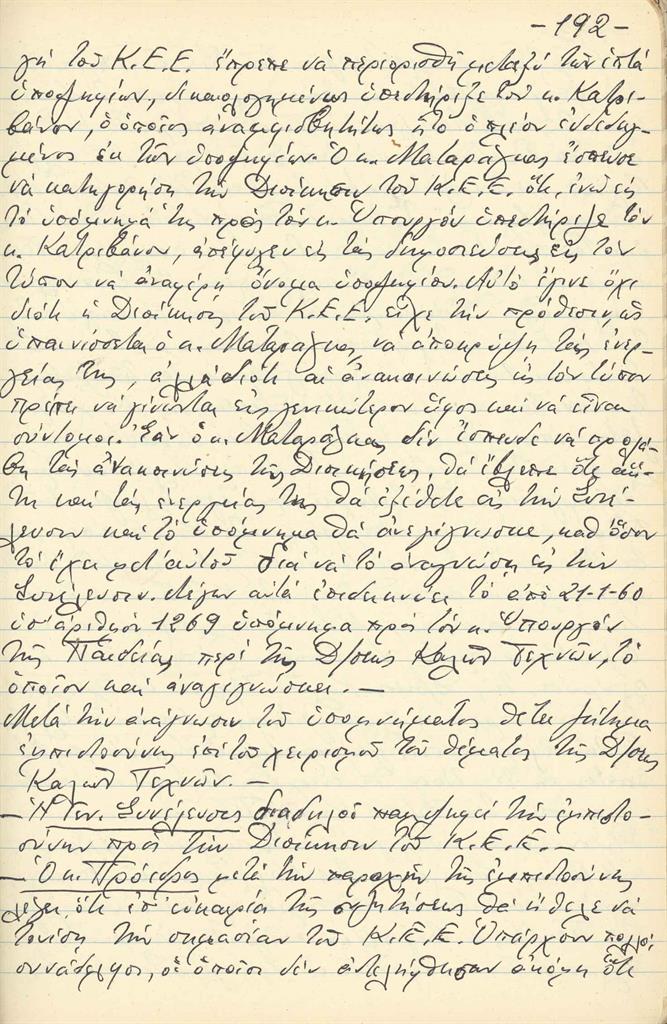 -192-
γή τοῦ Κ.Ε.Ε. ἔπρεπε νά περιορισθῆ μεταξύ τῶν ἑπτά
ὑποψηφίων, δικαιολογημένως ὑπεστήριξε τόν κ. Κατρι-
βάνον, ὁ ὁποῖος ἀναμφισβητήτως ἦτο ὁ πλέον ἐνδεδειγ-
μένος ἐκ τῶν ὑποψηφίων. Ὁ κ. Ματαράγκας ἔσπευσε
νά κατηγορήση τήν Διοίκησιν τοῦ Κ.Ε.Ε. ὅτι, ἐνῶ εἰς
τό ὑπόμνημά της πρός τόν κ. Ὑπουργόν ὑπεστήριξε τόν
κ. Κατριβάνον, ἀπέφυγεν εἰς τάς δημοσιεύσεις εἰς τόν
τύπον νά ἀναφέρη ὄνομα ὑποψηφίου. Αὐτό ἔγινε ὄχι
διότι ἡ Διοίκησις τοῦ Κ.Ε.Ε. εἶχε τήν πρόθεσιν, ὡς
ὑπαινίσσεται ὁ κ. Ματαράγκας, νά ἀποκρύψη τάς ἐνερ-
γείας της, ἀλλά διότι αἱ ἀνακοινώσεις εἰς τόν τύπον
πρέπει νά γίνωνται εἰς γενικώτερον ὕφος καί νά εἶναι
σύντομοι. Ἐάν ὁ κ. Ματαράγκας δέν ἔσπευδε νά προλά-
βη τάς ἀνακοινώσεις τῆς Διοικήσεως, θά ἔβλεπε ὅτι αὐ-
τη καί τάς ἐνεργείας της θά ἐξέθετε εἰς τήν Συνέ-
λευσιν καί τό ὑπόμνημα θά ἀνεγίγνωσκε, καθ' ὅσον
τό ἔχει μετ' αὐτοῦ διά νά τό ἀναγνώση εἰς τήν
Συνέλευσιν. Λέγων αὐτά ἐπιδεικνύει τό ἀπό 21-1-60
ὑπ' ἀριθμόν 1269 ὑπόμνημα πρός τόν κ. Ὑπουργόν
τῆς Παιδείας περί τῆς Δ/σεως Καλῶν Τεχνῶν, τό
ὁποῖον καί ἀναγιγνώσκει. —
Μετά τήν ἀνάγνωσιν τοῦ ὑπομνήματος θέτει ζήτημα
ἐμπιστοσύνης ἐπί τοῦ χειρισμοῦ τοῦ θέματος τῆς Δ/σεως
Καλῶν Τεχνῶν. —
— Ἡ Γεν. Συνέλευσις διαδηλοῖ παμψηφεί τήν ἐμπιστο-
σύνην πρός τήν Διοίκησιν τοῦ Κ.Ε.Ε. —
— Ὁ κ. Πρόεδρος μετά τήν παροχήν τῆς ἐμπιστοσύνης
λέγει, ὅτι ἐπ' εὐκαιρία τῆς συζητήσεως θά ἤθελε νά
τονίση τήν σημασίαν τοῦ Κ.Ε.Ε. Ὑπάρχουν πολλοί
συνάδελφοι, οἱ ὁποῖοι δέν ἀντελήφθησαν ἀκόμη ὅτι